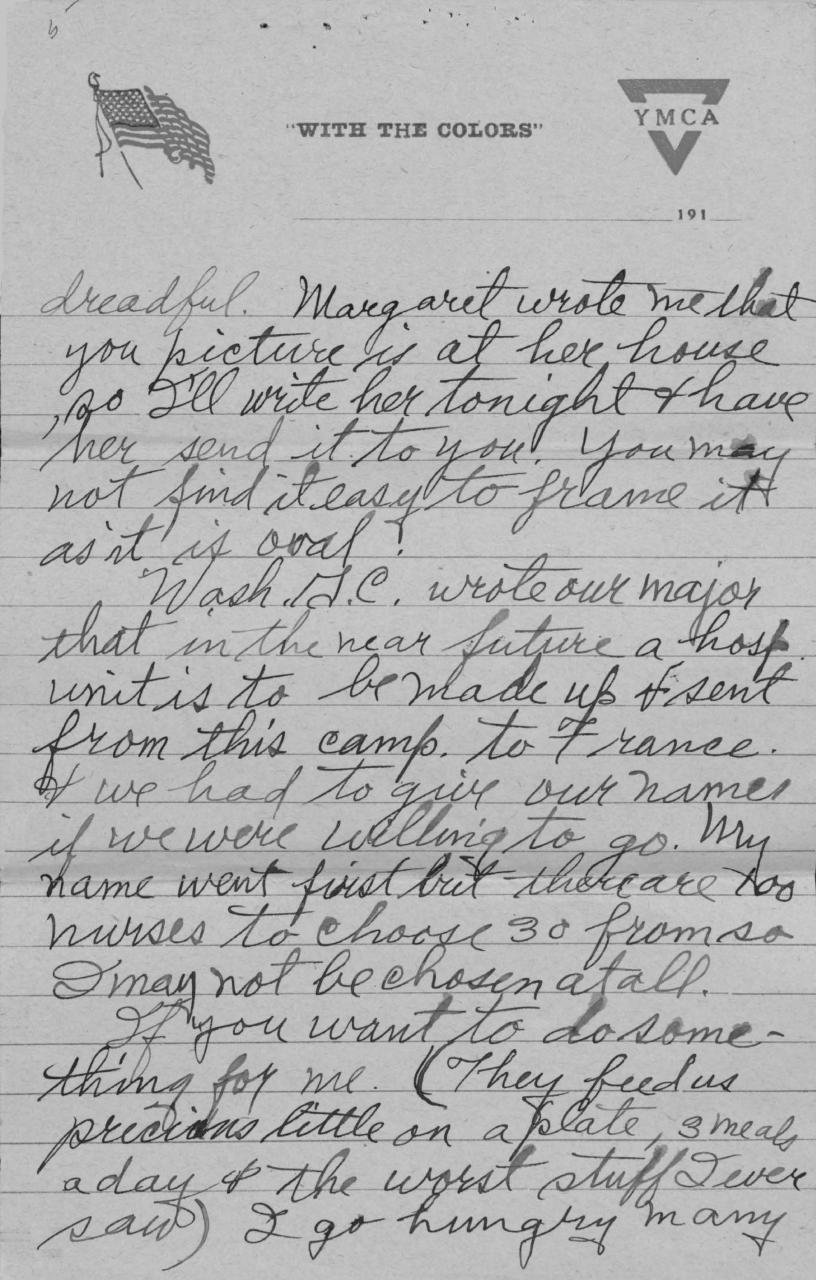 5
"WITH THE COLORS"
YMCA
191
dreadful. Margaret wrote me that
you picture is at her house
, so I'll write her tonight & have
her send it to you. You may
not find it easy to frame it
as it is oval!
Wash. D.C. wrote our major
that in the near future a hosp.
unit is to be made up & sent
from this camp. to France.
& we had to give our names
if we were willing to go. My
name went first but there are 100
nurses to choose 30 from so
I may not be chosen at all.
If you want to do some-
thing for me. (They feed us
precious little on a plate, 3 meals
a day & the worst stuff I ever
saw) I go hungry many